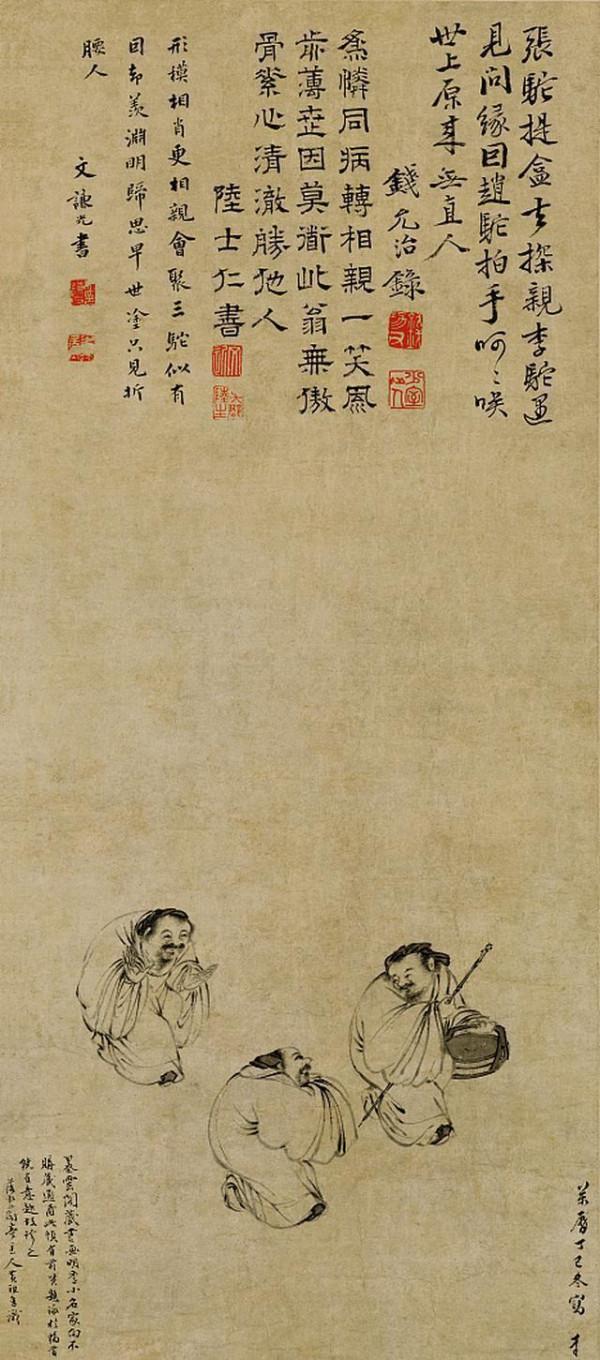 張駝提盒去探親李駝遇
見問緣因趙駝拍手呵〻咲
世上原来無直人
錢允治錄
為憐同病轉相親一笑風
前薄世因莫道此翁無傲
骨絫心清澈勝他人
陸士仁書
形模相肖更相親會聚三駝似有
因却羨淵明歸思早世途只見折
腰人
文謙光書
萬曆丁巳冬寫
藏書畫明季小名家向不